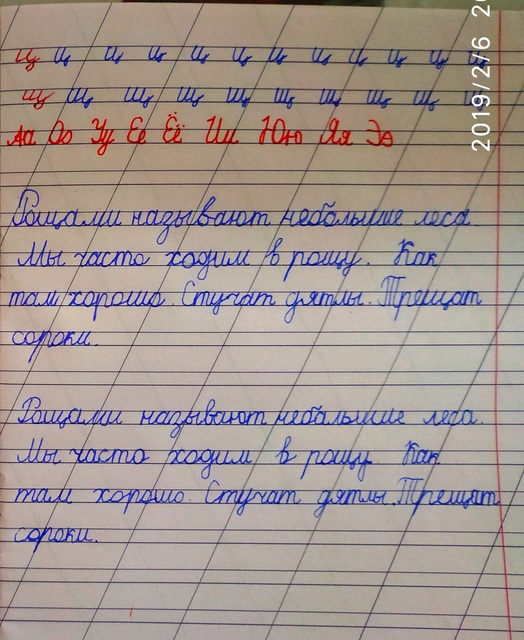 ц ц ц ц ц ц ц ц ц ц ц ц
щ щ щ щ щ щ щ щ щ щ щ
Аа Оо Уу Ее Ёё Ии Юю Яя Ээ
Рощами называют небольшие леса.
Мы часто ходим в рощу. Как
там хорошо. Стучат дятлы. Трещат
сороки.
Рощами называют небольшие леса.
Мы часто ходим в рощу. Как
там хорошо. Стучат дятлы. Трещат
сороки.
2019/2/6